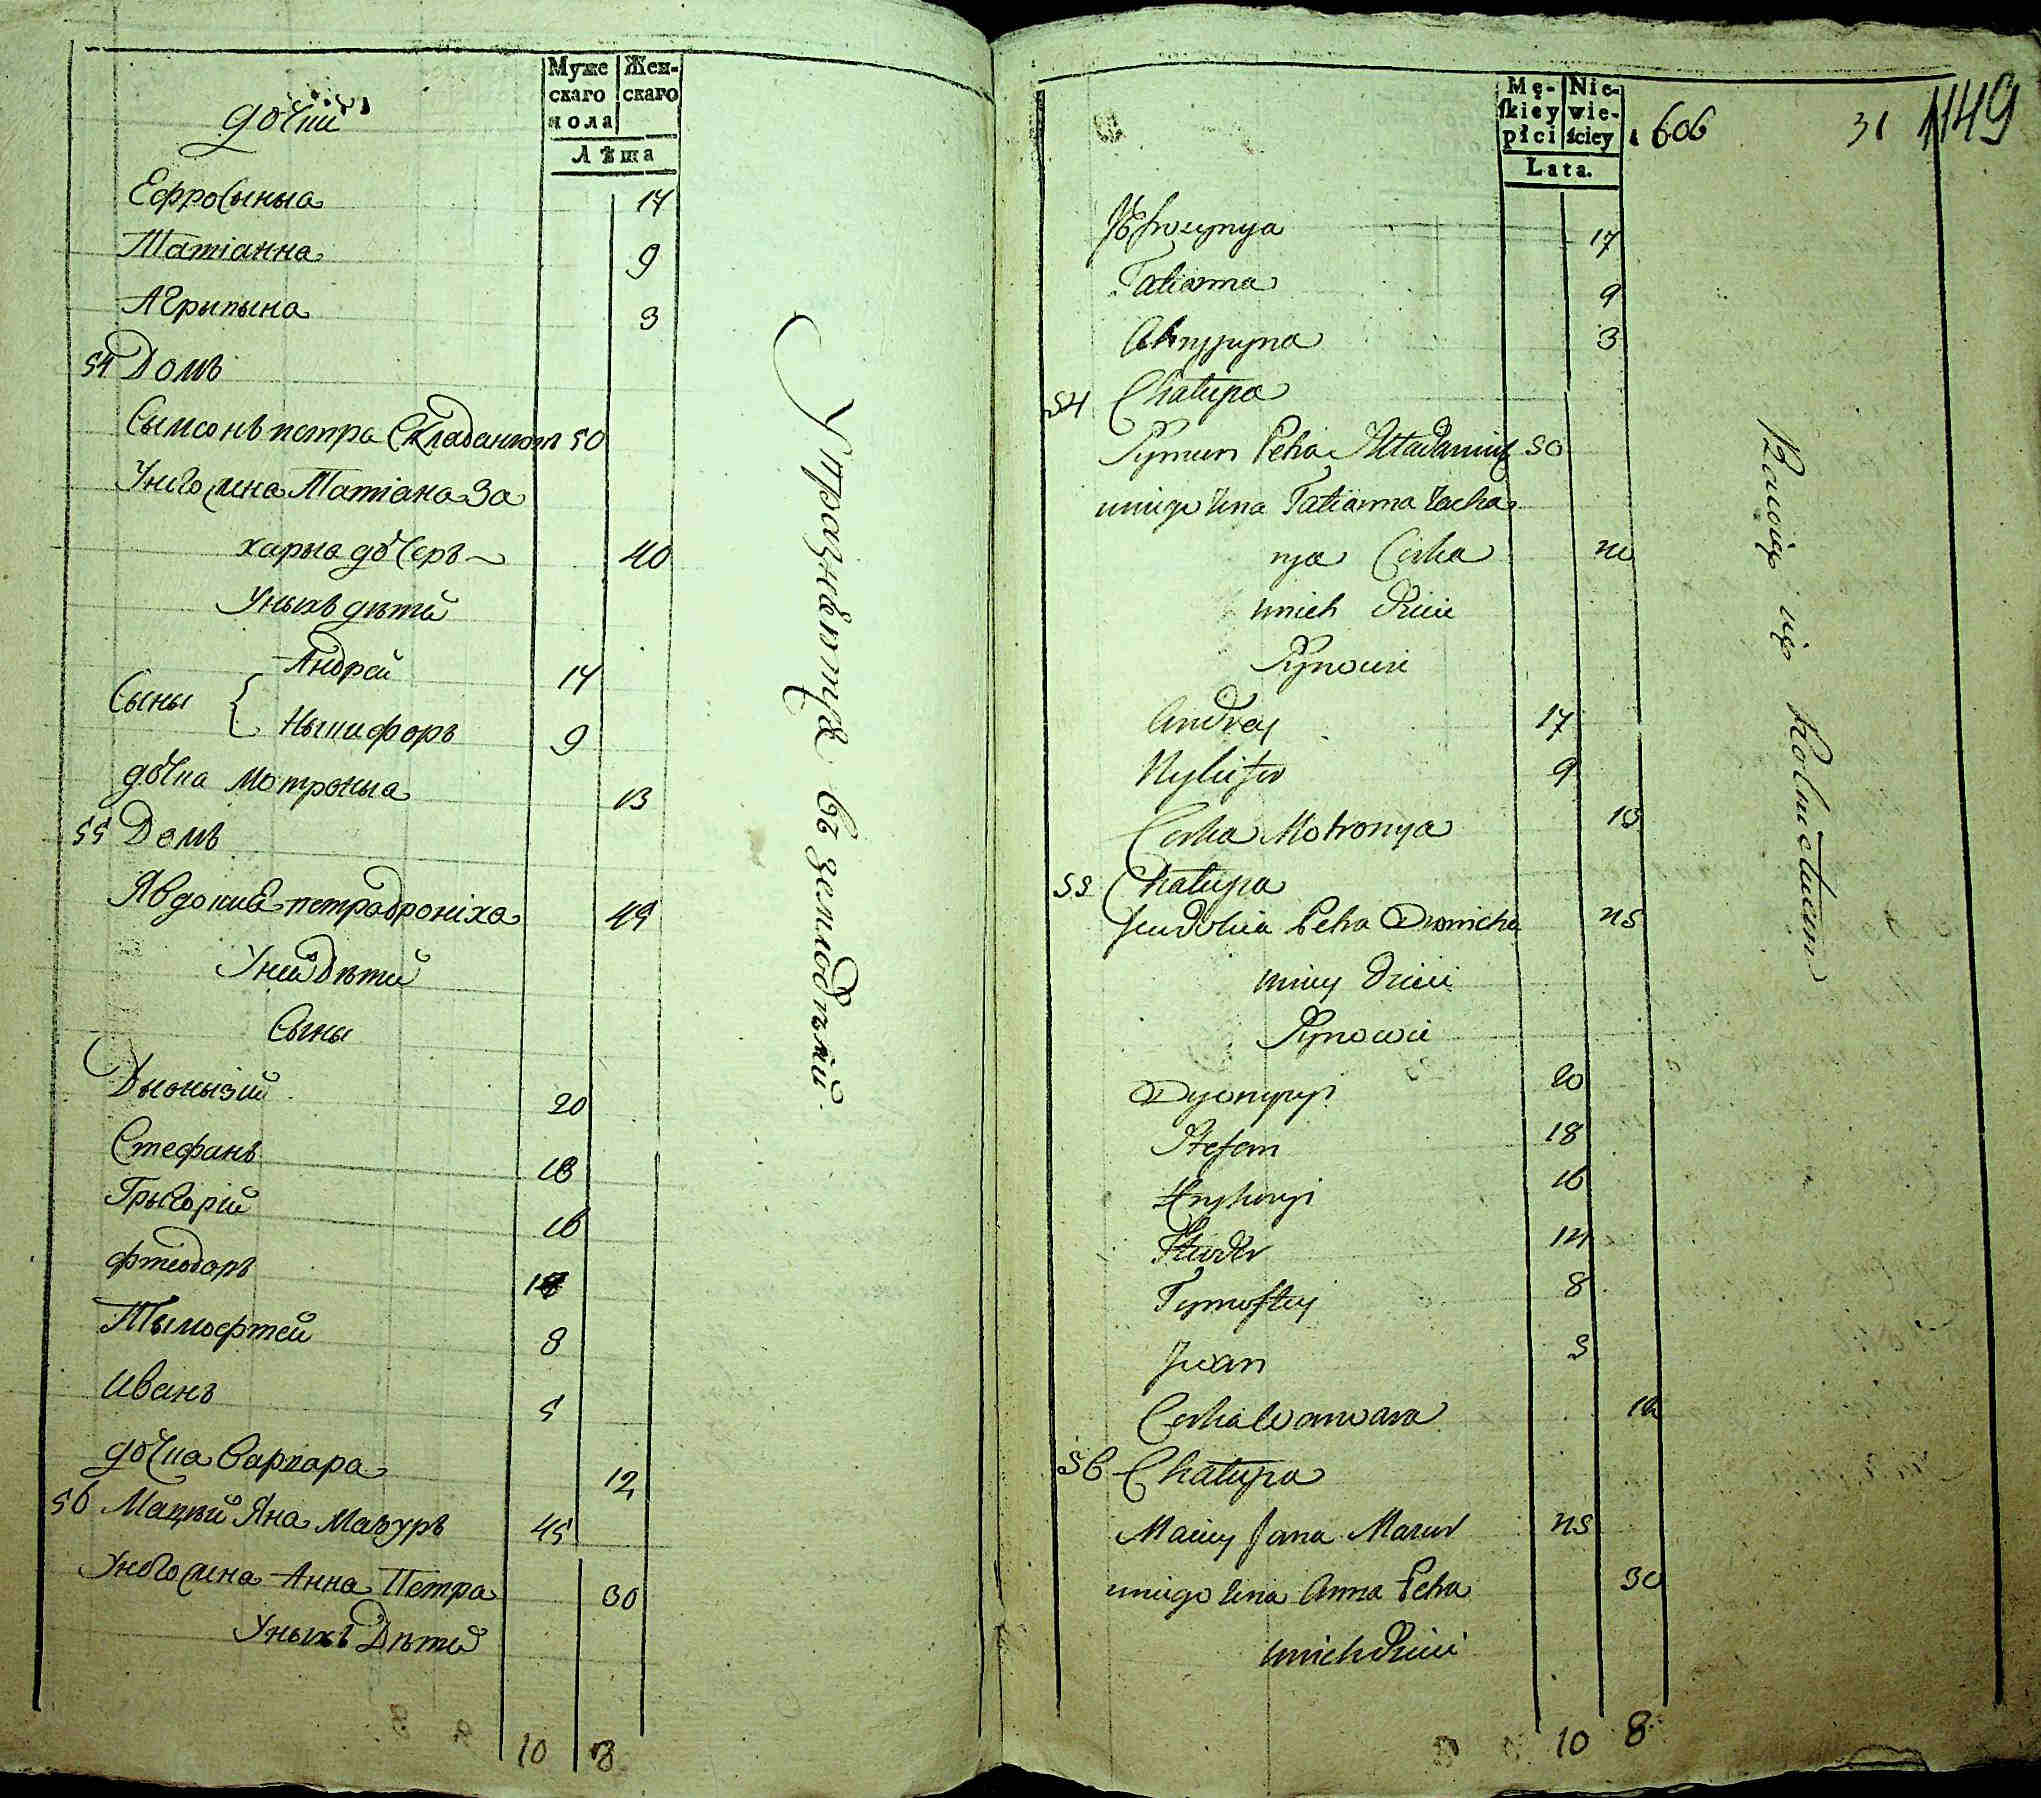 Муже
скаго
пола
Жен-
скаго
Лѣта
дочки
Ефросыныа 17
Татіанна 9
Агрыпына 3
54 Домъ
Сымонъ петра Складанюкъ 50
Унего жена Татіана За
харыа дочерь 40
Уныхъ дѣти
Сыны
Андрей 17
Ныкифоръ 9
дочка Мотроныа 13
55 Домъ
Явдокиа петра дроніха 45
Уней дѣти
Сыны
Дыонызій 20
Стефанъ 18
Грыгорій 16
Фтеодоръ 14
Тымофтей 8
Иванъ 5
дочка Варвара 12
56 Мацѣй Яна Мазуръ 45
Унего жена Анна Петра 30
Уныхъ Дѣти
10 8
Упражнѣются въ земледѣлій
Mę-
skiey
płci
Nie-
wie-
ściey
Lata.
606 31 1149
Jefrozynya 17
Tatianna 9
Ahrypyna 3
54 Chałupa
Symon Petra Składaniuk 50
uniego żona Tatianna Zacha
rya Corka 40
unich Dzieci
Synowie
Andrey 17
Nykifor 9
Corka Motronya 13
55 Chałupa
Jewdokia Petra Dronicha 45
uniey Dzieci
Synowie
Dyonyzyi 20
Stefan 18
Hryhoryi 16
Fteodor 14
Tymoftey 8
Jwan 5
Corka Warwara 12
56 Chałupa
Maciey Jana Mazur 45
uniego żona Anna Petra 30
unich Dzieci
10 8
Bawią się Rolnictwem